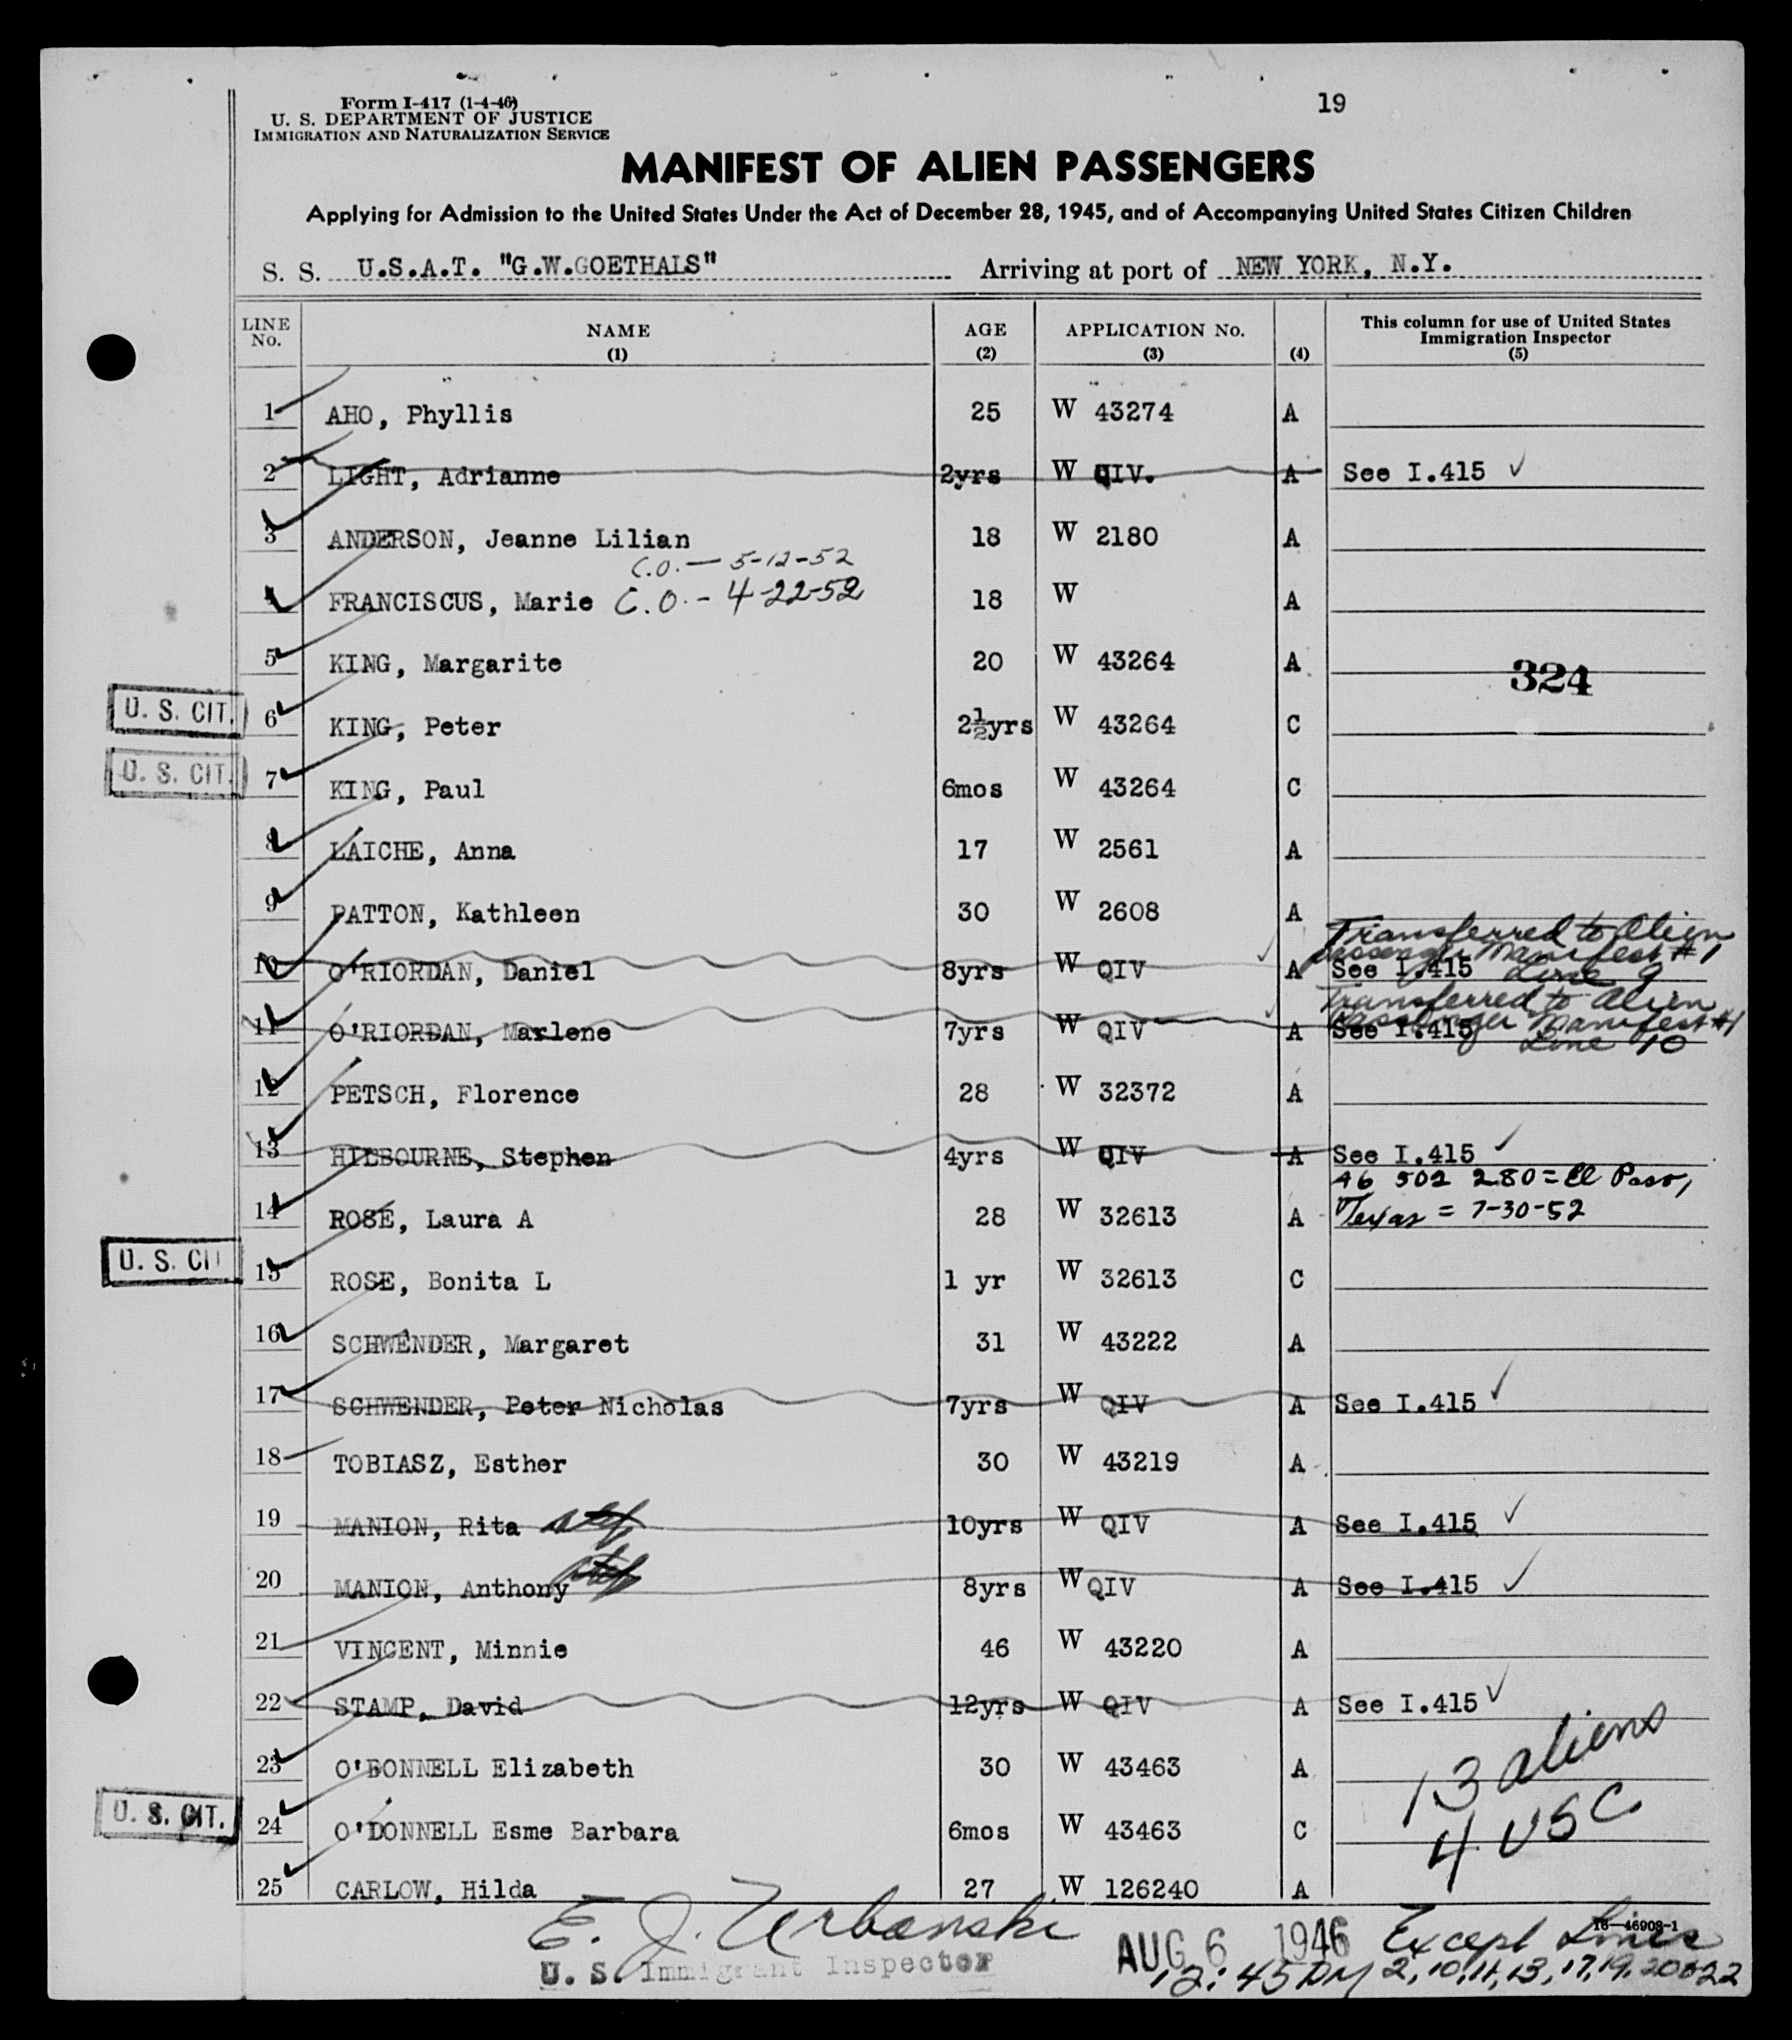 Form I-417 (1-4-46)
19
U. S. DEPARTMENT OF JUSTICE
IMMIGRATION AND NATURALIZATION SERVICE
MANIFEST OF ALIEN PASSENGERS
Applying for Admission to the United States Under the Act of December 28, 1945, and of Accompanying United States Citizen Children
S. S. U.S.A.T. "G.W.GOETHALS" Arriving at port of NEW YORK, N.Y.
LINE No. NAME (1) AGE (2) APPLICATION No. (3) (4) This column for use of United States Immigration Inspector (5)
1 AHO, Phyllis 25 W 43274 A
2 LIGHT, Adrianne 2yrs W QIV. A See I.415 ✓
3 ANDERSON, Jeanne Lilian 18 W 2180 A
C.O. — 5-12-52
4 FRANCISCUS, Marie C.O. - 4-22-52 18 W A
5 KING, Margarite 20 W 43264 A
324
U. S. CIT. 6 KING, Peter 2½yrs W 43264 C
U. S. CIT. 7 KING, Paul 6mos W 43264 C
8 LAICHE, Anna 17 W 2561 A
9 PATTON, Kathleen 30 W 2608 A
Transferred to Alien
Passenger Manifest #1
10 O'RIORDAN, Daniel 8yrs W QIV A See I.415 Line 9
Transferred to Alien
Passenger Manifest #1
11 O'RIORDAN, Marlene 7yrs W QIV A See I.415 Line 10
12 PETSCH, Florence 28 W 32372 A
13 HILBOURNE, Stephen 4yrs W QIV A See I.415 ✓
A6 502 280 = El Paso,
14 ROSE, Laura A 28 W 32613 A Texas = 7-30-52
U. S. CI 15 ROSE, Bonita L 1 yr W 32613 C
16 SCHWENDER, Margaret 31 W 43222 A
17 SCHWENDER, Peter Nicholas 7yrs W QIV A See I.415 ✓
18 TOBIASZ, Esther 30 W 43219 A
19 MANION, Rita 10yrs W QIV A See I.415 ✓
20 MANION, Anthony 8yrs W QIV A See I.415 ✓
21 VINCENT, Minnie 46 W 43220 A
22 STAMP, David 12yrs W QIV A See I.415 ✓
23 O'DONNELL Elizabeth 30 W 43463 A
13 aliens
U. S. CIT. 24 O'DONNELL Esme Barbara 6mos W 43463 C
4 USC
25 CARLOW, Hilda 27 W 126240 A
16—46908-1
E. J. Urbanski AUG 6 1946 Except Lines
U. S. Immigrant Inspector 12:45 PM 2, 10, 11, 13, 17, 19, 20 & 22